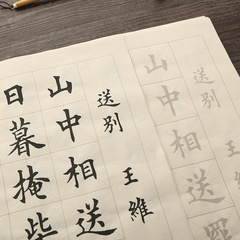 送别
山中相送罷
送别 王維
山中相送
日暮掩柴